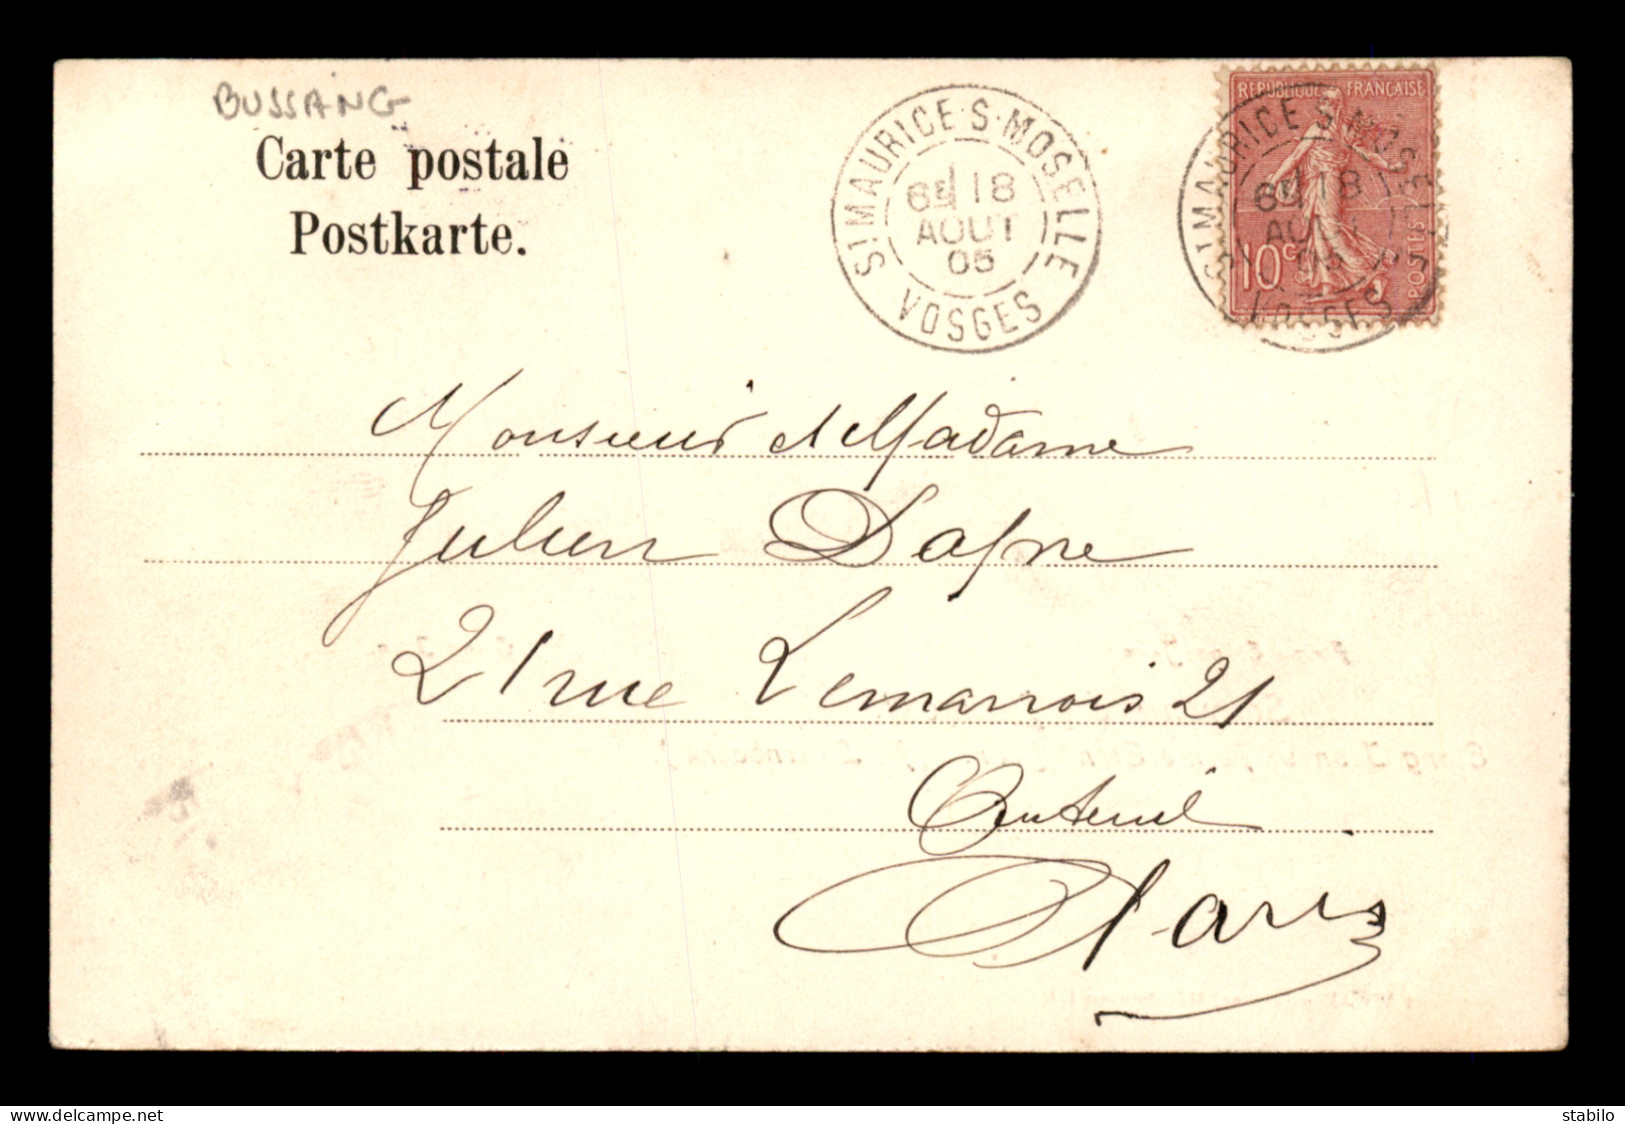 BUSSANG
Carte postale
Postkarte.
ST MAURICE·S·MOSELLE
6E 18
AOUT
05
VOSGES
REPUBLIQUE FRANÇAISE
10c
POSTES
ST MAURICE S MOSELLE
6E 18
AOUT
05
VOSGES
Monsieur et Madame
Julien
21 rue Lemarrois 21
Auteuil
Paris
position: absolute
stabilo